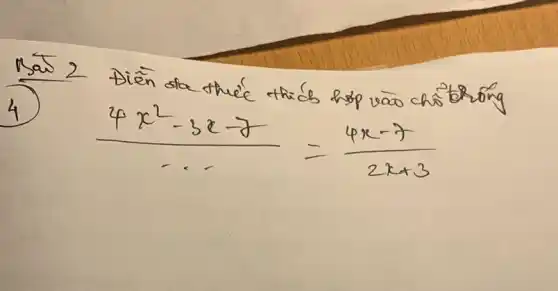 Bài 2 Điền đa thức thích hợp vào chỗ trống
4
4x² - 3x - 7 / ... = 4x - 7 / 2x + 3